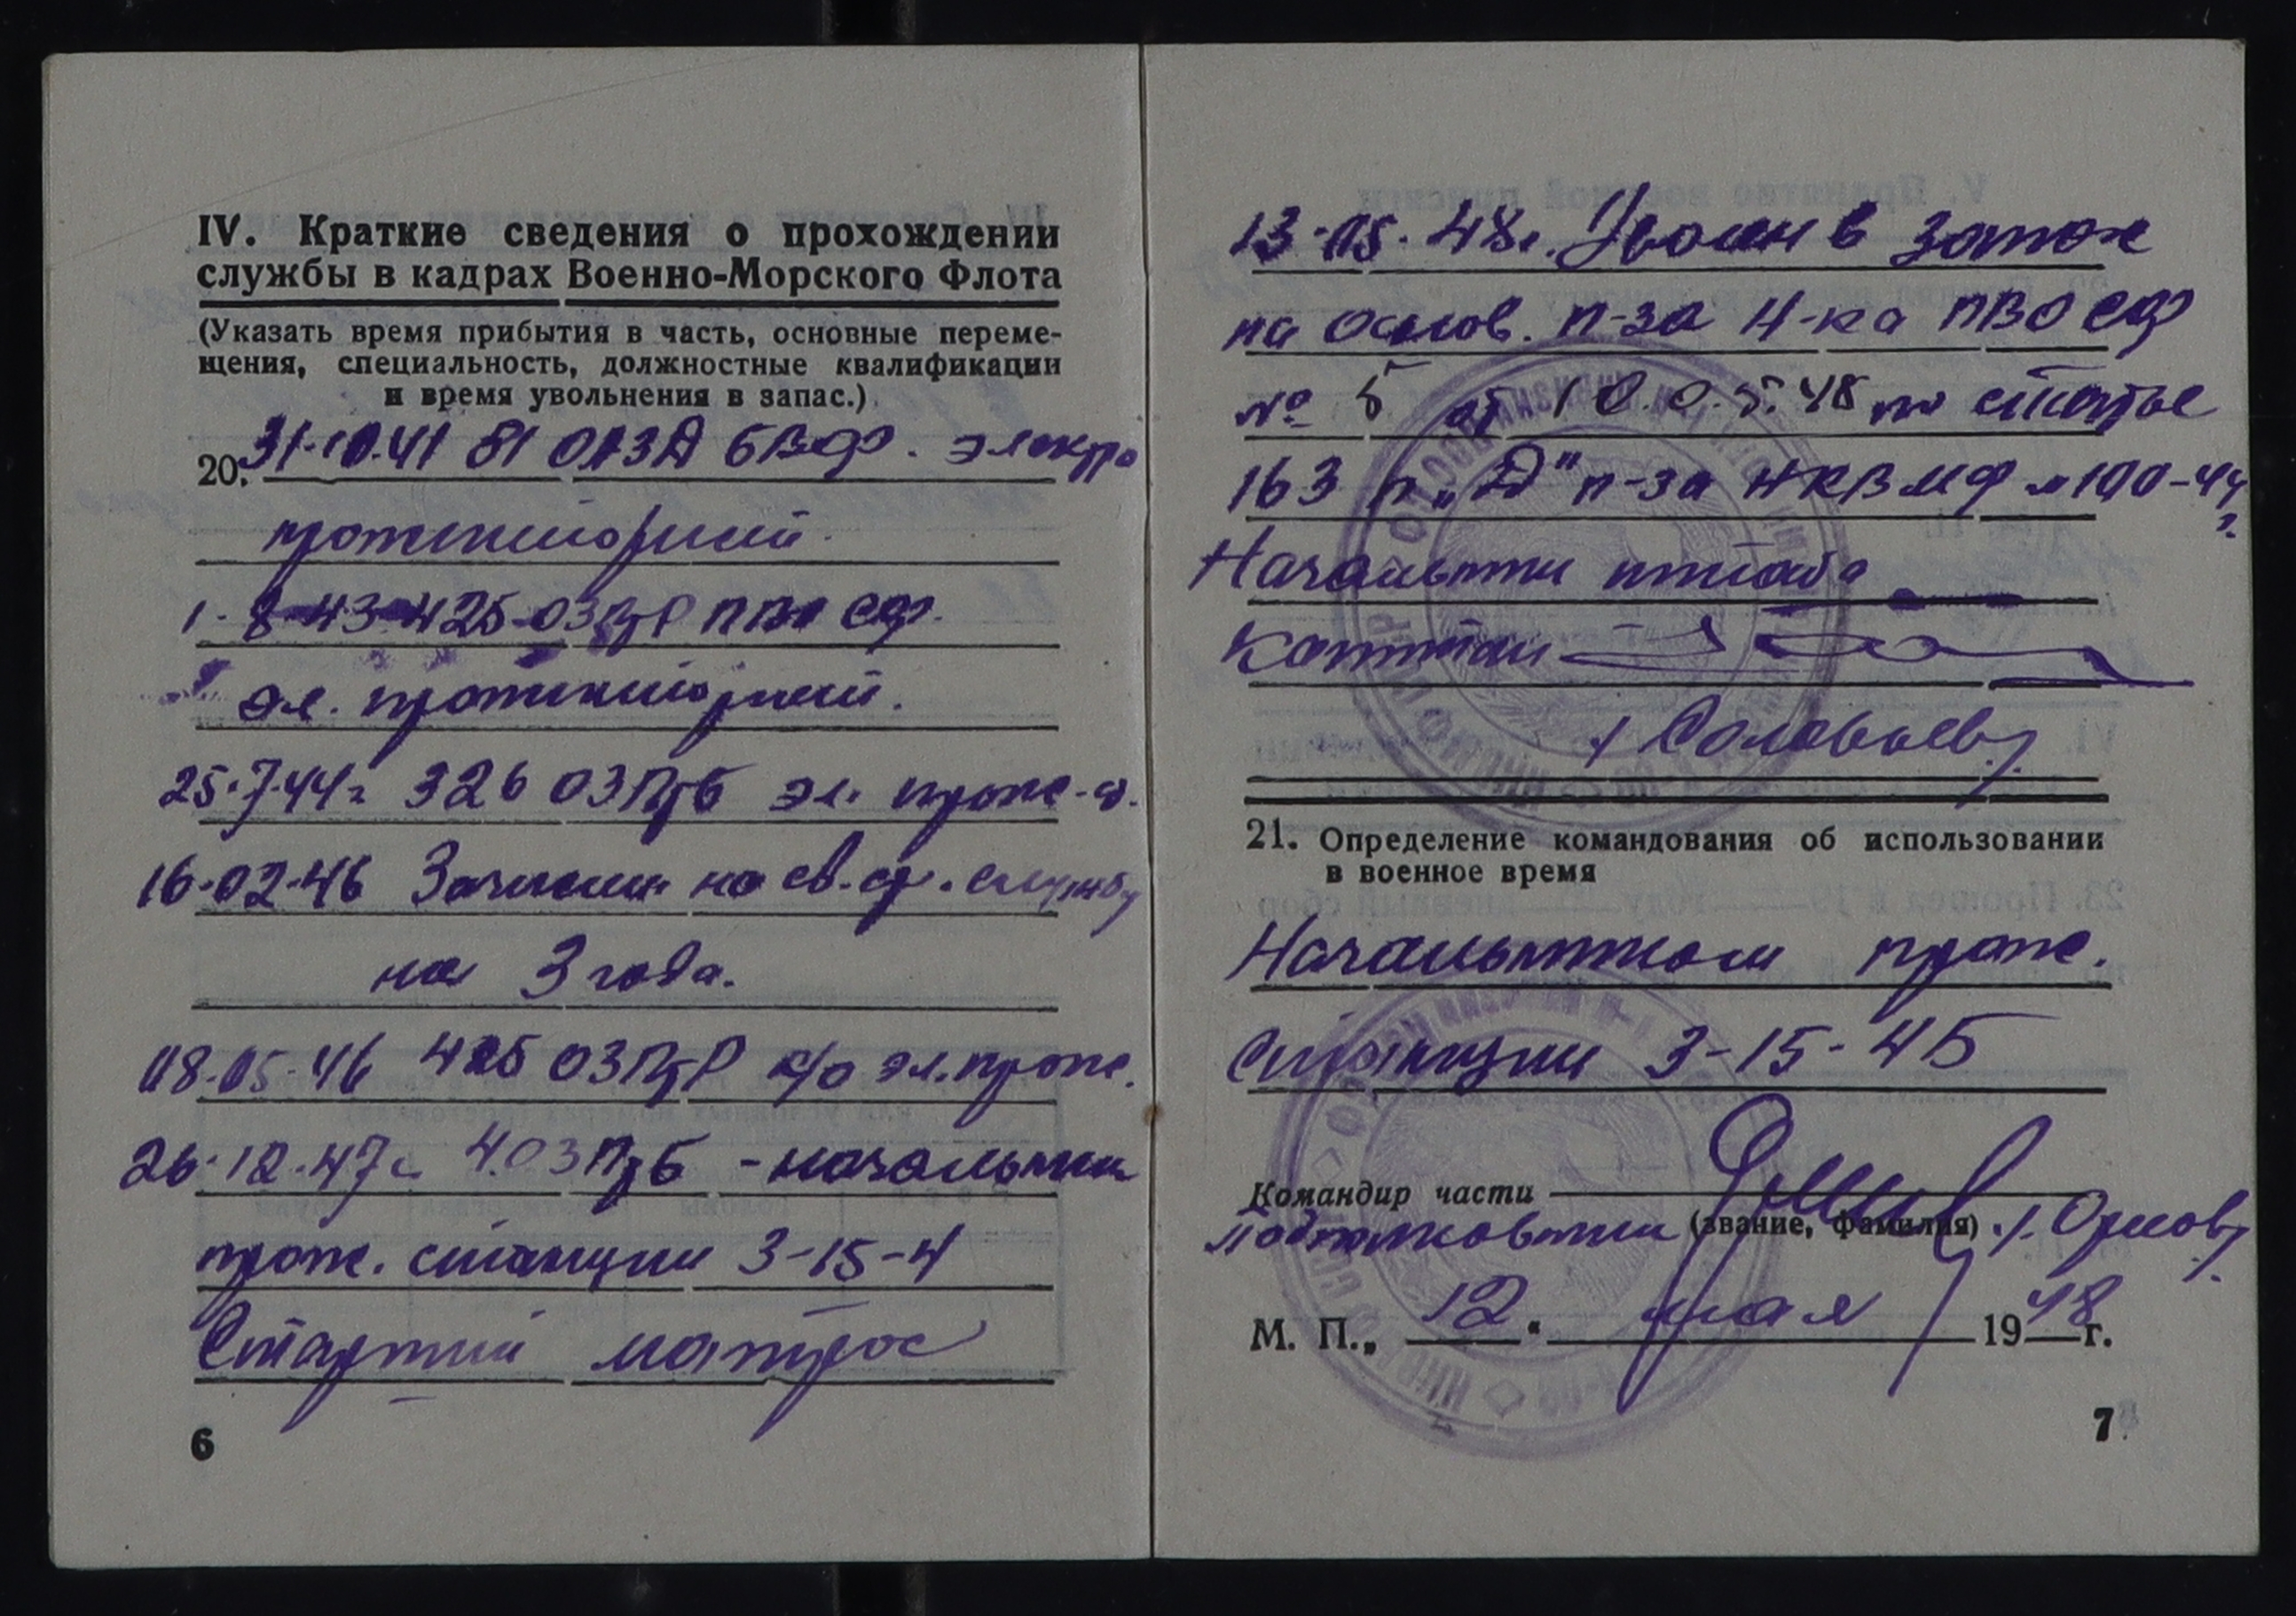 IV. Краткие сведения о прохождении
службы в кадрах Военно-Морского Флота
(Указать время прибытия в часть, основные переме-
щения, специальность, должностные квалификации
и время увольнения в запас.)
20. 31-10.41 81 ОАЗД БВФ. электро
прожекторный
1-8-43-425 ОЗПрР ПВО СФ.
эл. прожекторный.
25.7.44г 326 ОЗПрБ эл. прож-й.
16-02-46 Зачислен на св.ср. службу
на 3 года.
08.05-46 425 ОЗПрР к/о эл.прож.
26.12.47г. 4.ОЗПрБ - начальник
прож. станции 3-15-4
Старший матрос
6
13-05.48г. Уволен в запас
на основ. п-за Н-ка ПВО СФ
№ 5 от 10.05.48 по статье
163 п „Д" п-за НКВМФ №190-44
г.
Начальник штаба
Капитан
/ Соловьев/
21. Определение командования об использовании
в военное время
Начальником прож.
станции 3-15-4Б
Командир части
подполковник (звание, фамилия) /. Орлов/
М. П. „ 12 " мая 1948 г.
7